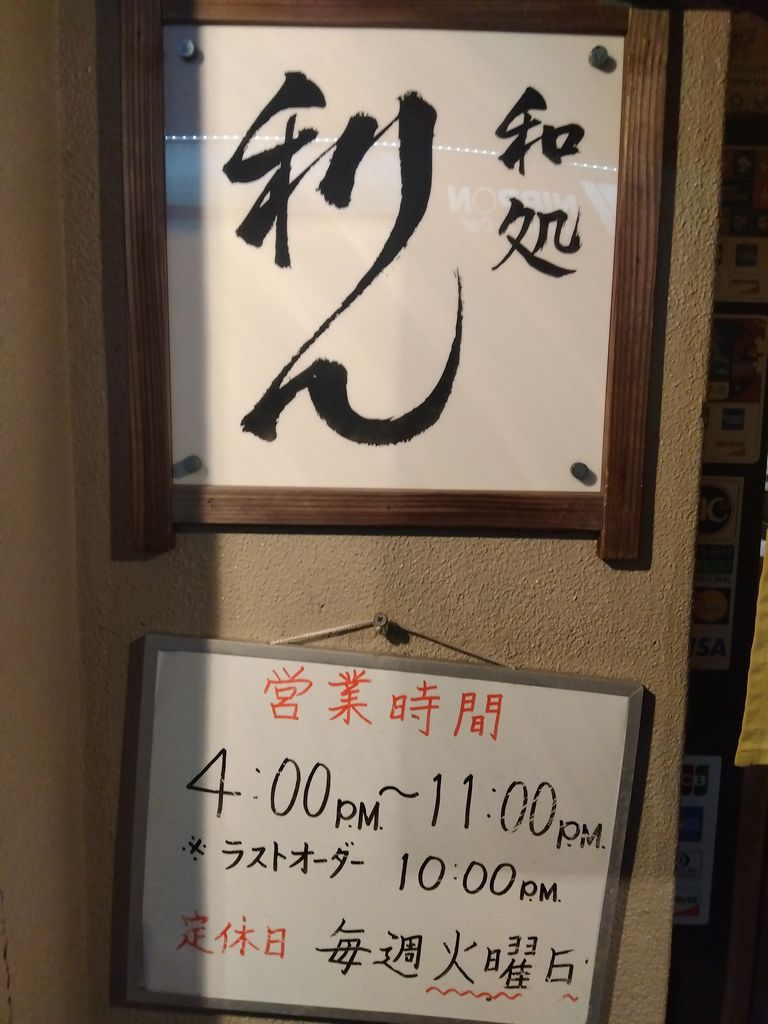 和処
利ん
営業時間
4:00P.M.~11:00P.M.
※ラストオーダー 10:00P.M.
定休日 毎週火曜日
VISA